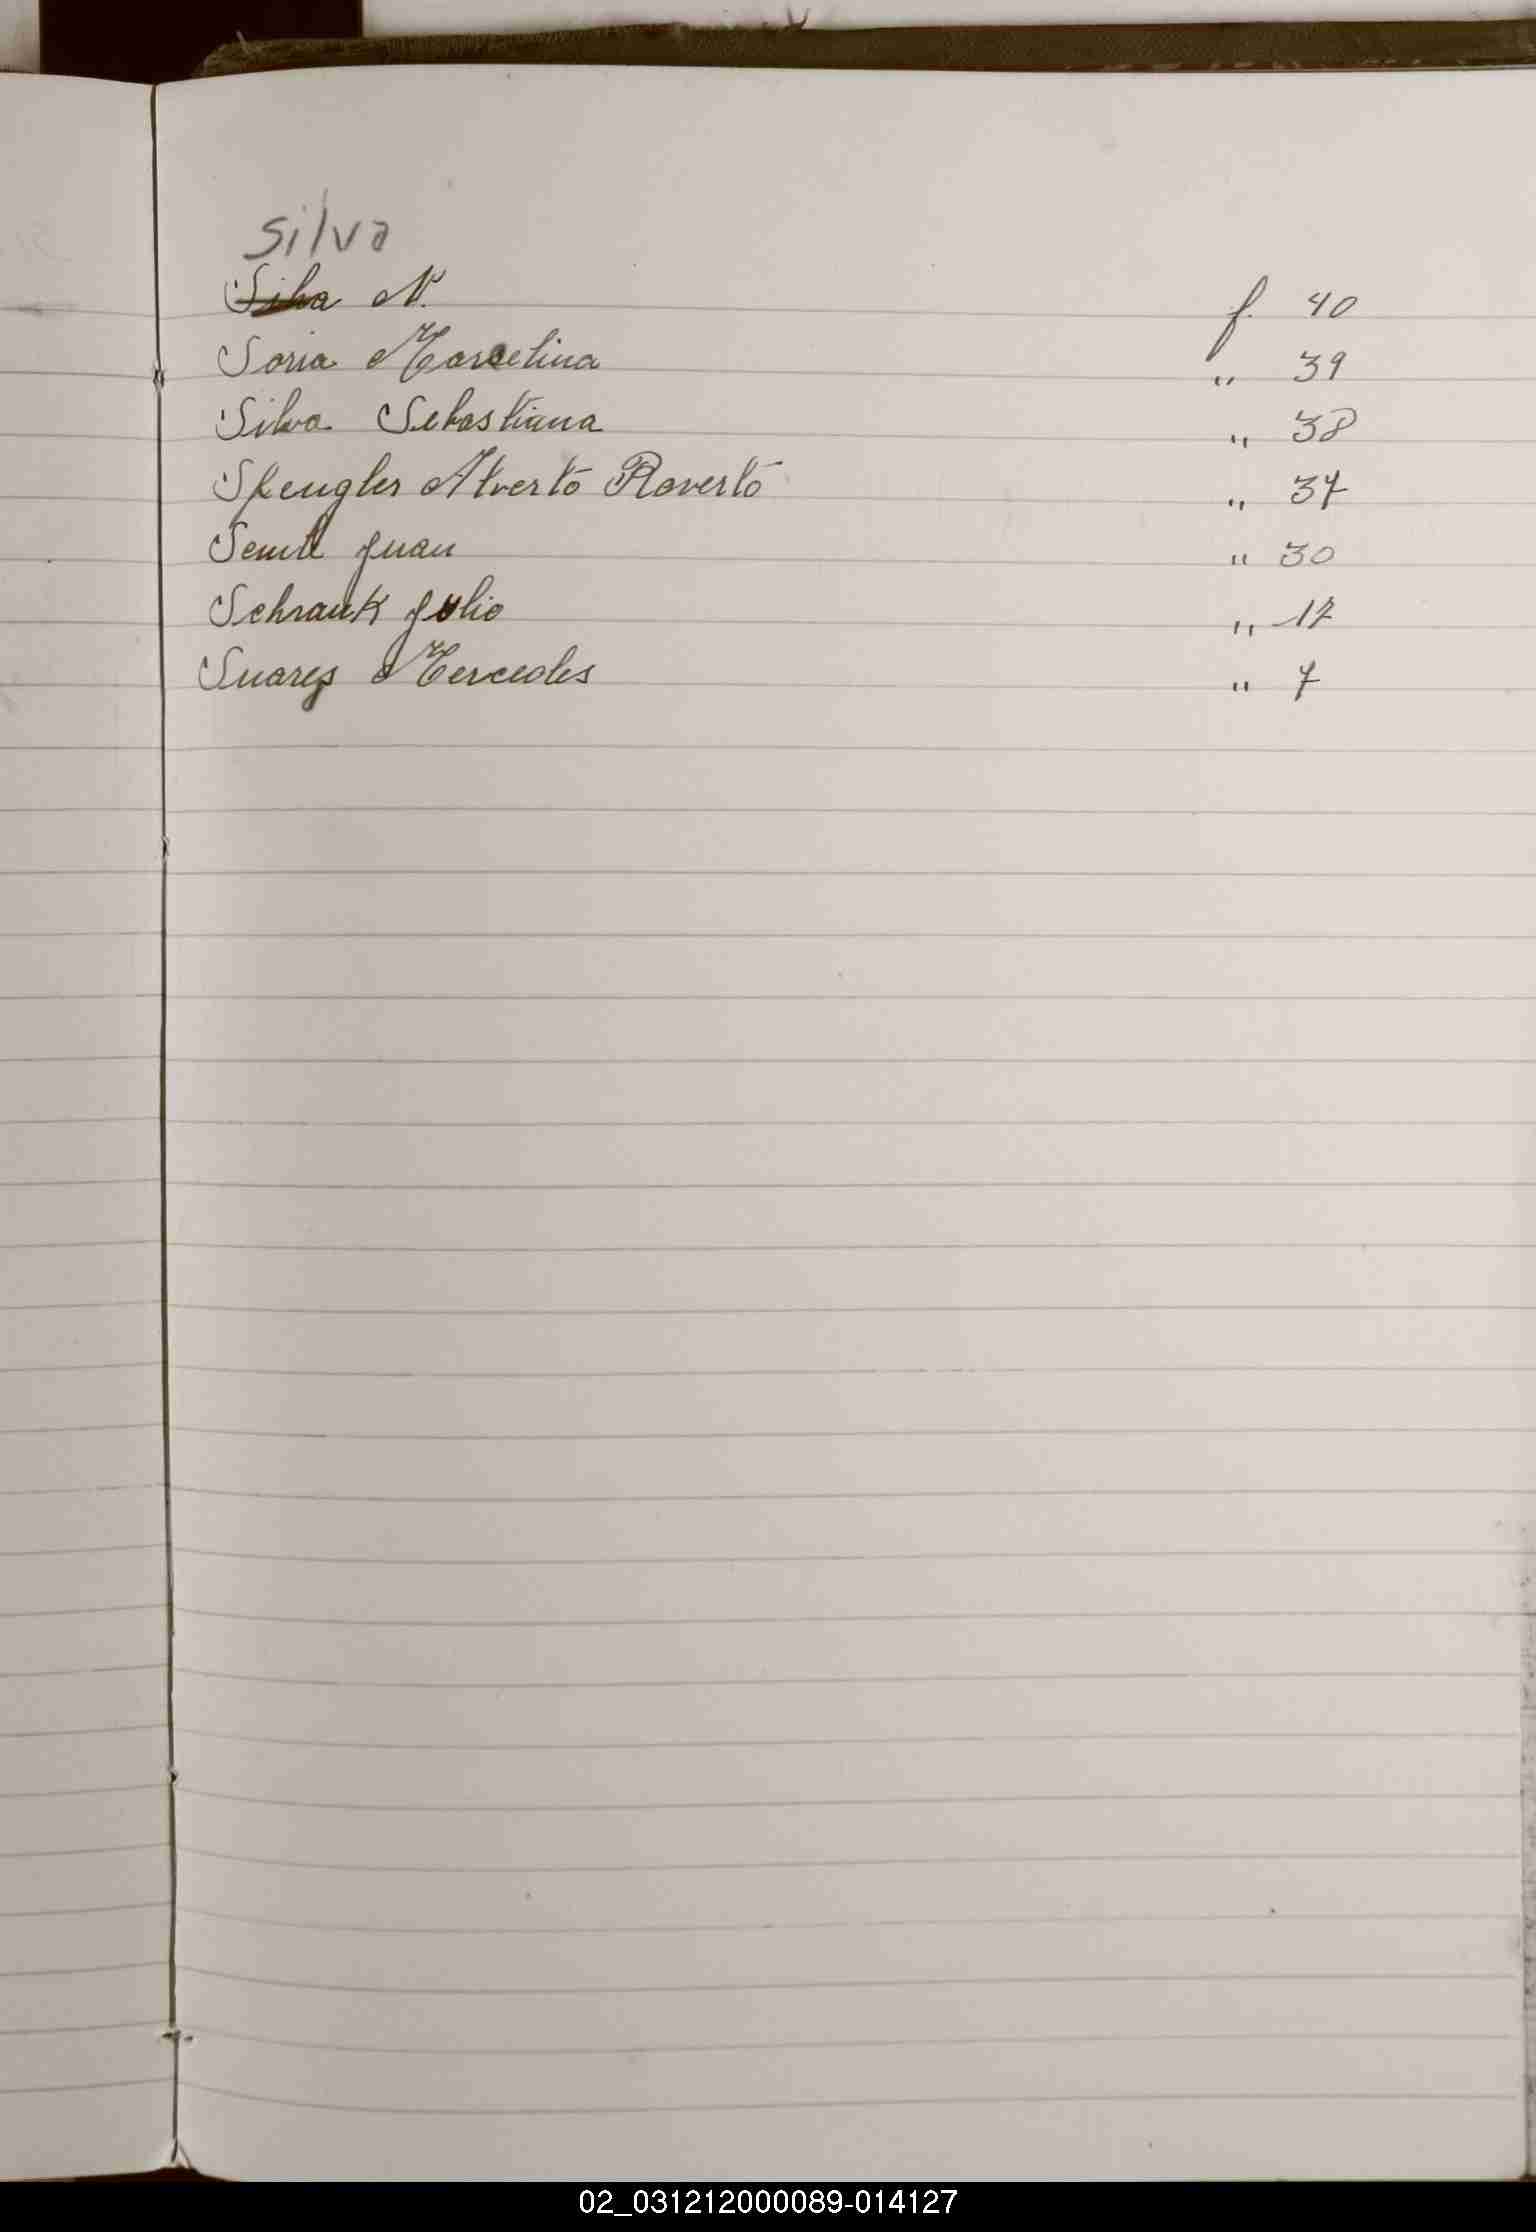 Silva
Silva N. f. 40
Soria Marcelina " 39
Silva Sebastiana " 38
Spengler Alverto Roverto " 37
Juan " 30
Schrank Julio " 17
Suares Mercedes " 7
02_031212000089-014127